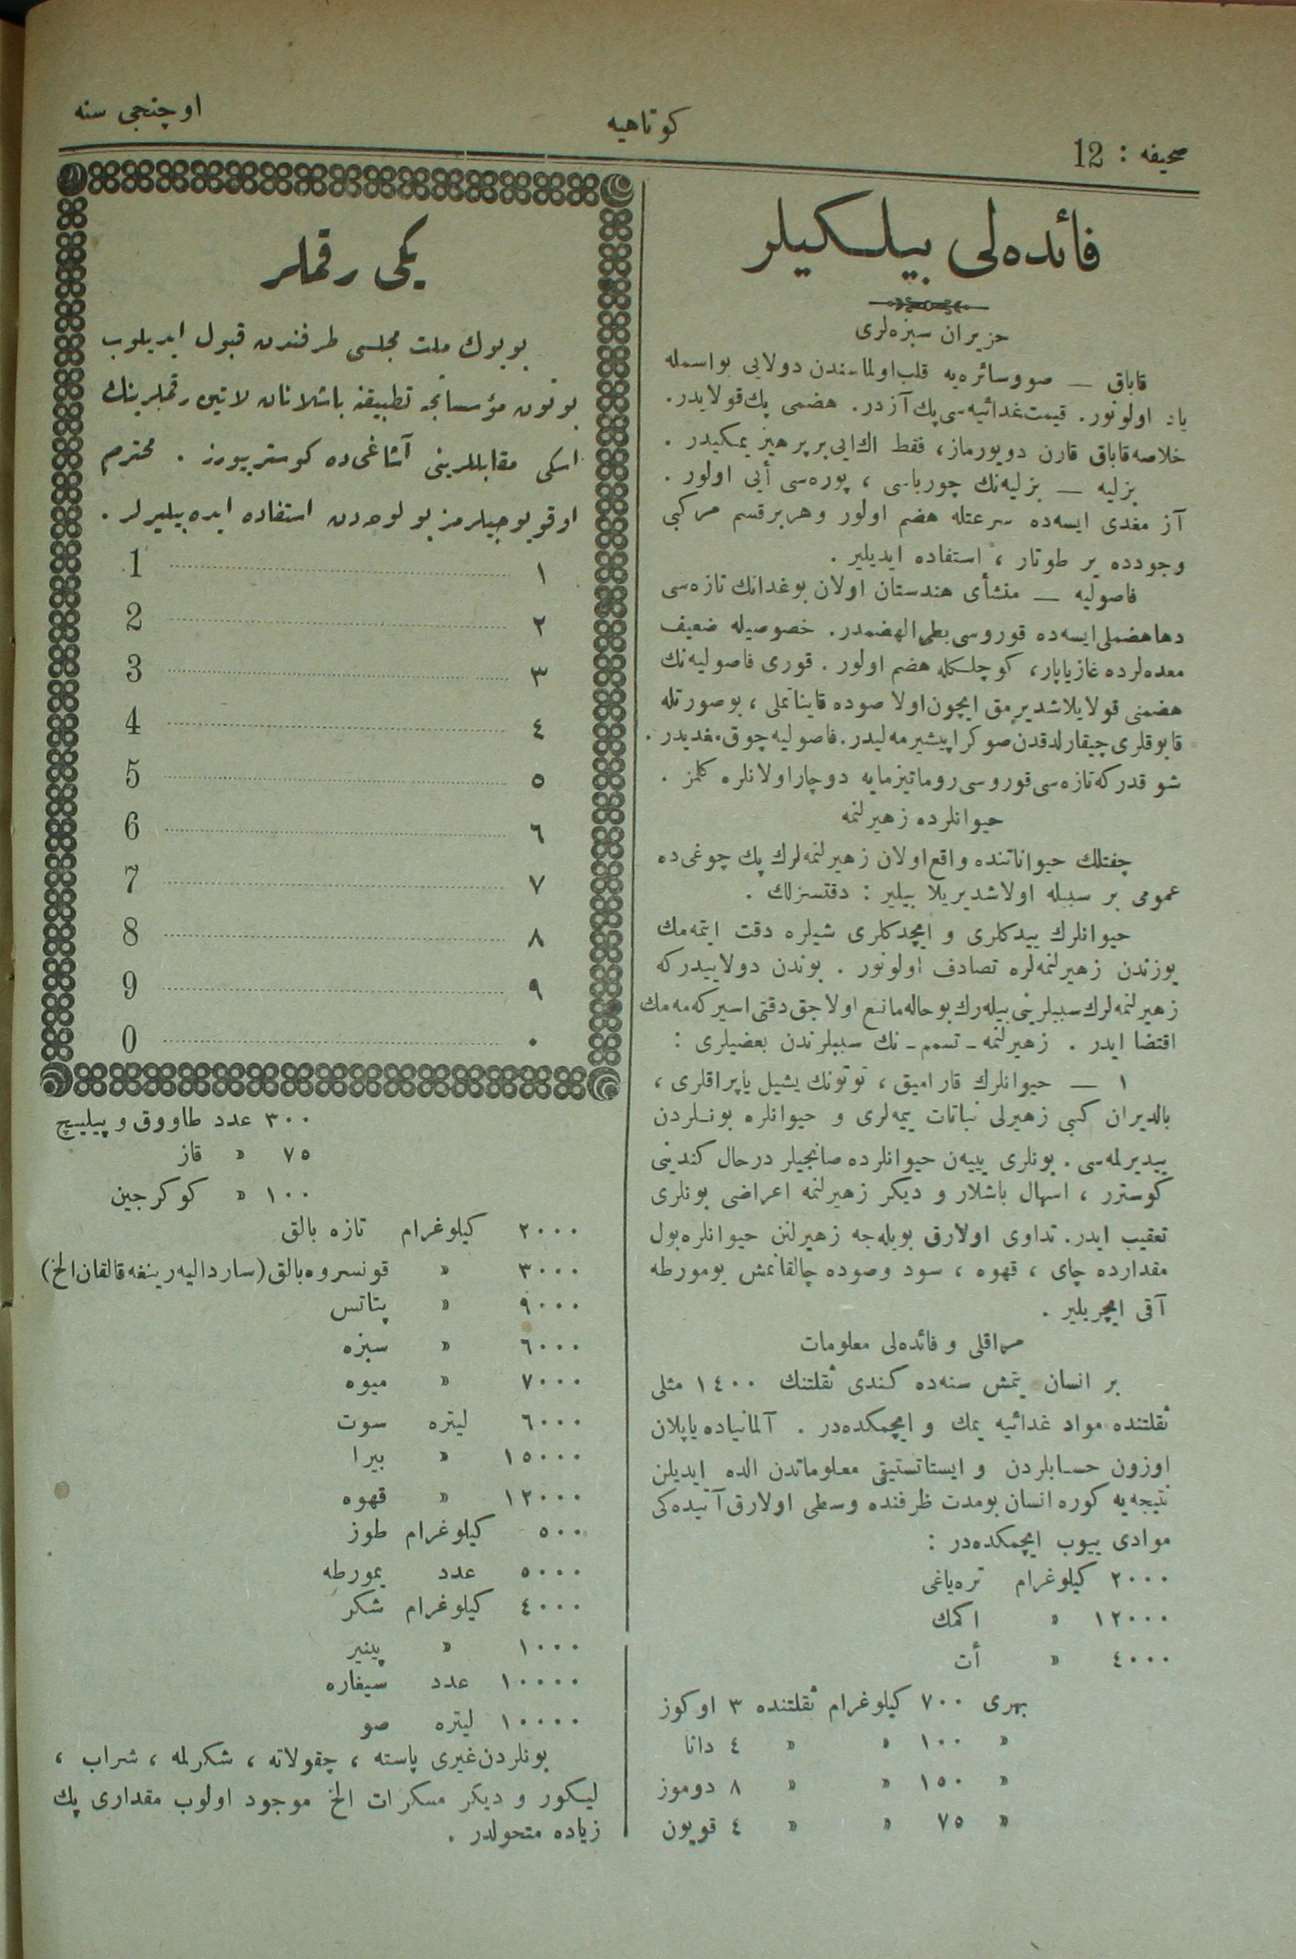 صحیفه : 12
كوتاهیه
اوچنجی سنه
فائده‌لی بیلـكیلر
حزیران سبزه‌لری
قاباق — صو وسائره‌یه قلب اولماسندن دولایی بو اسمله
یاد اولونور. قیمت غدائیه‌سی پك آزدر. هضمی پك قولایدر.
خلاصه قاباق قارن دویورماز، فقط اك ایی بر پرهیز یمكیدر .
بزلیه — بزلیه‌نك چورباسی ، پوره‌سی أیی اولور .
آز مغدی ایسه‌ده سرعتله هضم اولور وهر بر قسم مركبی
وجودده یر طوتار ، استفاده ایدیلیر .
فاصولیه — منشأی هندستان اولان بوغدانك تازه‌سی
دها هضملی ایسه‌ده قوروسی بطی‌الهضمدر. خصوصیله ضعیف
معده‌لرده غاز یاپار، كوچلكله هضم اولور . قوری فاصولیه‌نك
هضمنی قولایلاشدیرمق ایچون اولا صوده قایناتملی ، بو صورتله
قابوقلری چیقارلدقدن صوكرا پیشیرمه‌لیدر. فاصولیه چوق مغدیدر .
شو قدركه تازه‌سی قوروسی روماتیزمایه دوچار اولانلره كلمز .
حیوانلرده زهیرلنمه
چفتلك حیواناتنده واقع اولان زهیرلنمه‌لرك پك چوغی ده
عمومی بر سببله اولاشدیریلا بیلیر : دقتسزلك .
حیوانلرك ییدكلری و ایچدكلری شیلره دقت ایتمه‌مك
یوزندن زهیرلنمه‌لره تصادف اولونور . بوندن دولاییدركه
زهیرلنمه‌لرك سببلرینی بیله‌رك بو حاله مانع اولاجق دقتی اسیركه‌مه‌مك
اقتضا ایدر . زهیرلنمه ـ تسمم ـ نك سببلرندن بعضیلری :
١ — حیوانلرك قارامیق ، توتونك یشیل یاپراقلری ،
بالدیران كبی زهیرلی نباتات ییمه‌لری و حیوانلره بونـلردن
ییدیرلمه‌سی . بونلری ییيه‌ن حیوانلرده صانجیلر درحال كندینی
كوسترر ، اسهال باشلار و دیكر زهیرلنمه اعراضی بونلری
تعقیب ایدر. تداوی اولارق بویله‌جه زهیرلنن حیوانلره بول
مقدارده چای ، قهوه ، سود وصوده چالقانمش یومورطه
آقی ایچریلیر .
مراقلی و فائده‌لی معلومات
بر انسان یتمش سنه‌ده كـندی ثقلتنك ١٤٠٠ مثلی
ثقلتنده مواد غدائیه یمك و ایچمكده‌در . آلمانیاده یاپلان
اوزون حسـابلردن و ایستاتستیقی معلوماتدن الده ایدیلن
نتیجه‌یه كوره انسان بو مدت ظرفنده وسطی اولارق آتیده‌كی
موادی ییوب ایچمكده‌در :
٢٠٠٠ كیلوغرام تره‌یاغی
١٢٠٠٠ » اكمك
٤٠٠٠ » أت
بهری ٧٠٠ كیلوغرام ثقلتنده ٣ اوكوز
» ١٠٠ » » ٤ دانا
» ١٥٠ » » ٨ دوموز
» ٧٥ » » ٤ قویون
یكی رقملر
بویوك ملت مجلسی طرفندن قبول ایدیلوب
بوتون مؤسساتجه تطبیقنه باشلانان لاتین رقملرینك
اسكی مقابللرینی آشاغی‌ده كوسترییورز . محترم
اوقویوجیلرمز بو لوحه‌دن استفاده ایده‌بیلیرلر .
١ 1
٢ 2
٣ 3
٤ 4
٥ 5
٦ 6
٧ 7
٨ 8
٩ 9
٠ 0
٣٠٠ عدد طاووق و پیلیـچ
٧٥ » قاز
١٠٠ » كوكرجین
٢٠٠٠ كیلوغرام تازه بالق
٣٠٠٠ » قونسروه بالق (ساردالیه رینغه قالقان الخ)
٩٠٠٠ » پتاتس
٦٠٠٠ » سبزه
٧٠٠٠ » میوه
٦٠٠٠ لیتره سوت
١٥٠٠٠ » بیرا
١٢٠٠٠ » قهوه
٥٠٠ كیلوغرام طوز
٥٠٠٠ عدد یمورطه
٤٠٠٠ كیلوغرام شكر
١٠٠٠ » پینیر
١٠٠٠٠ عدد سیغاره
١٠٠٠٠ لیتره صو
بونلردن غیری پاسته ، چقولاته ، شكرلمه ، شراب ،
لیكور و دیكر مسكرات الخ موجود اولوب مقداری پك
زیاده متحولدر .